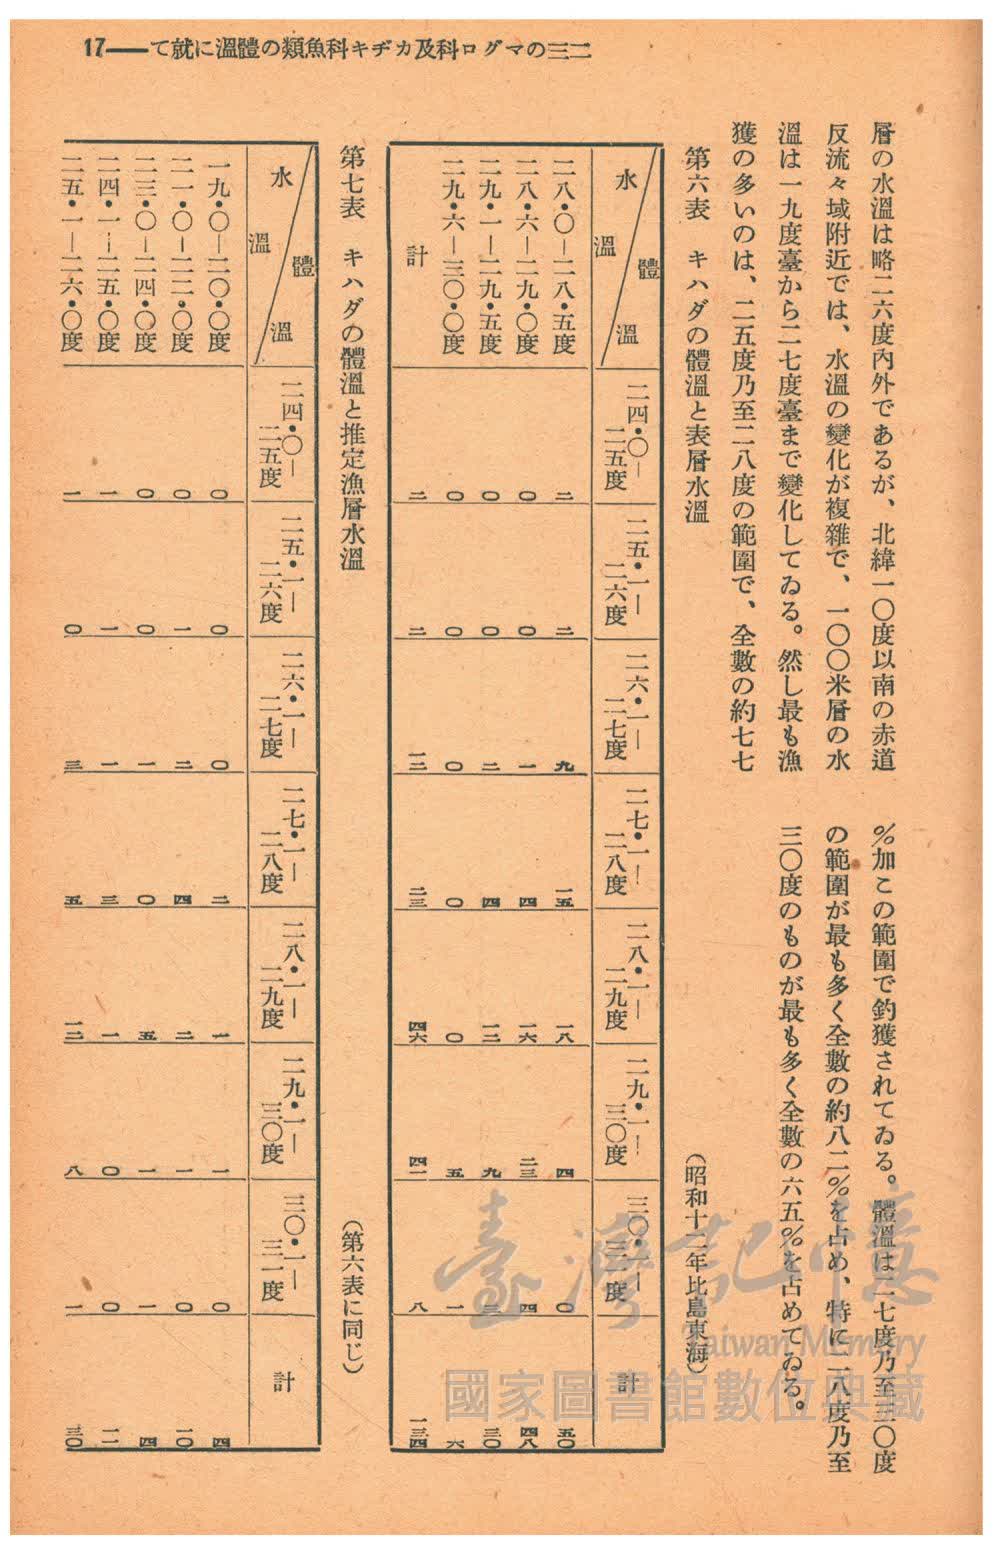 二三のマグロ科及カヂキ科魚類の體溫に就て——17
層の水溫は略二六度內外であるが、北緯一〇度以南の赤道
反流々域附近では、水溫の變化が複雜で、一〇〇米層の水
溫は一九度臺から二七度臺まで變化してゐる。然し最も漁
獲の多いのは、二五度乃至二八度の範圍で、全數の約七七
%加この範圍で釣獲されてゐる。體溫は二七度乃至三〇度
の範圍が最も多く全數の約八二%を占め、特に二八度乃至
三〇度のものが最も多く全數の六五%を占めてゐる。
第六表 キハダの體溫と表層水溫 (昭和十二年比島東海)
水溫 體溫 二四・〇—二五度 二五・一—二六度 二六・一—二七度 二七・一—二八度 二八・一—二九度 二九・一—三〇度 三〇・一—三一度 計
二八・〇—二八・五度 二 二 九 一五 一八 四 〇 五〇
二八・六—二九・〇度 〇 〇 一 四 一六 二三 四 四八
二九・一—二九・五度 〇 〇 二 四 一二 九 三 三〇
二九・六—三〇・〇度 〇 〇 〇 〇 〇 五 一 六
計 二 二 一二 二三 四六 四一 八 一三四
第七表 キハダの體溫と推定漁層水溫 (第六表に同じ)
水溫 體溫 二四・〇—二五度 二五・一—二六度 二六・一—二七度 二七・一—二八度 二八・一—二九度 二九・一—三〇度 三〇・一—三一度 計
一九・〇—二〇・〇度 〇 〇 〇 二 一 一 〇 四
二一・〇—二二・〇度 〇 一 二 四 二 一 〇 一〇
二三・〇—二四・〇度 〇 〇 一 〇 五 一 一 四
二四・一—二五・〇度 一 一 一 三 一 〇 〇 一一
二五・一—二六・〇度 一 〇 三 五 一二 八 一 三〇
臺灣記憶
Taiwan Memory
國家圖書館數位典藏